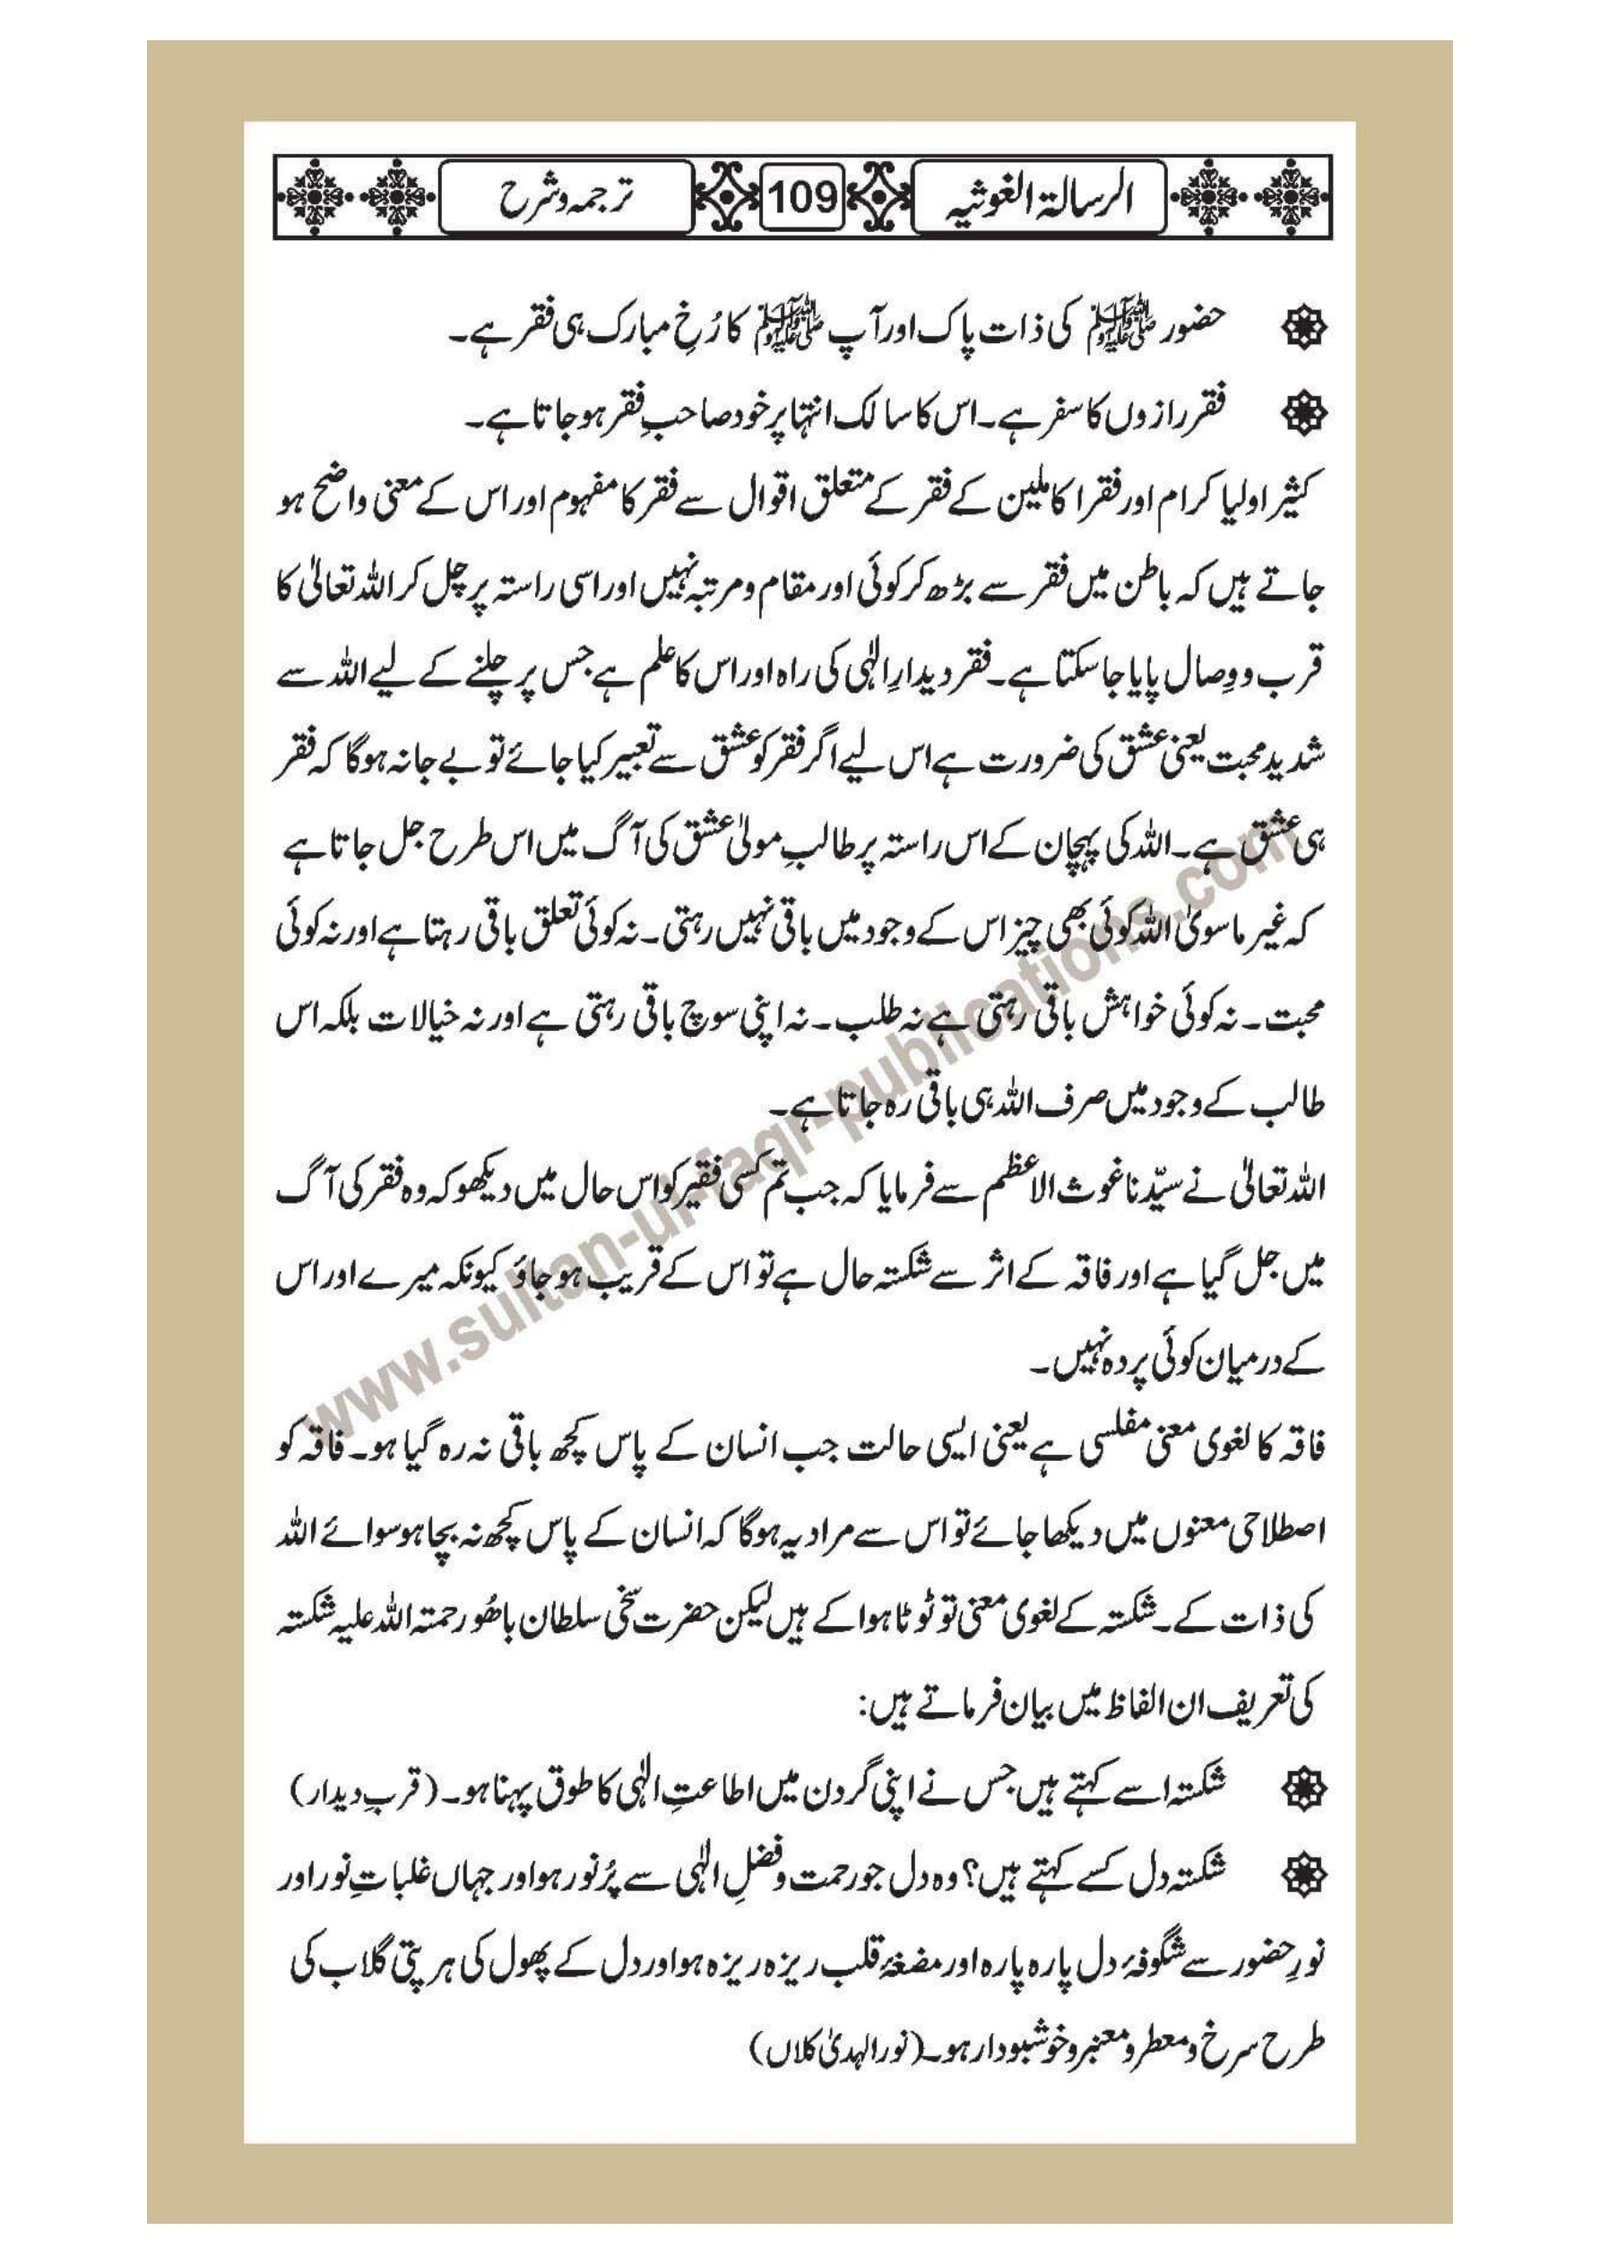 الرسالۃ الغوثیہ 109 ترجمہ و شرح
حضور ﷺ کی ذات پاک اور آپ ﷺ کا رُخِ مبارک ہی فقر ہے۔
فقر رازوں کا سفر ہے۔ اس کا سالک انتہا پر خود صاحبِ فقر ہو جاتا ہے۔
کثیر اولیا کرام اور فقرا کاملین کے فقر کے متعلق اقوال سے فقر کا مفہوم اور اس کے معنی واضح ہو
جاتے ہیں کہ باطن میں فقر سے بڑھ کر کوئی اور مقام و مرتبہ نہیں اور اسی راستہ پر چل کر اللہ تعالیٰ کا
قرب و وِصال پایا جا سکتا ہے۔ فقر دیدارِ الٰہی کی راہ اور اس کا علم ہے جس پر چلنے کے لیے اللہ سے
شدید محبت یعنی عشق کی ضرورت ہے اس لیے اگر فقر کو عشق سے تعبیر کیا جائے تو بے جا نہ ہوگا کہ فقر
ہی عشق ہے۔ اللہ کی پہچان کے اس راستہ پر طالبِ مولیٰ عشق کی آگ میں اس طرح جل جاتا ہے
کہ غیر ماسویٰ اللہ کوئی بھی چیز اس کے وجود میں باقی نہیں رہتی۔ نہ کوئی تعلق باقی رہتا ہے اور نہ کوئی
محبت۔ نہ کوئی خواہش باقی رہتی ہے نہ طلب۔ نہ اپنی سوچ باقی رہتی ہے اور نہ خیالات بلکہ اس
طالب کے وجود میں صرف اللہ ہی باقی رہ جاتا ہے۔
اللہ تعالیٰ نے سیّدنا غوث الاعظم سے فرمایا کہ جب تم کسی فقیر کو اس حال میں دیکھو کہ وہ فقر کی آگ
میں جل گیا ہے اور فاقہ کے اثر سے شکستہ حال ہے تو اس کے قریب ہو جاؤ کیونکہ میرے اور اس
کے درمیان کوئی پردہ نہیں۔
فاقہ کا لغوی معنی مفلسی ہے یعنی ایسی حالت جب انسان کے پاس کچھ باقی نہ رہ گیا ہو۔ فاقہ کو
اصطلاحی معنوں میں دیکھا جائے تو اس سے مراد یہ ہوگا کہ انسان کے پاس کچھ نہ بچا ہو سوائے اللہ
کی ذات کے۔ شکستہ کے لغوی معنی تو ٹوٹا ہوا کے ہیں لیکن حضرت سخی سلطان باھُو رحمتہ اللہ علیہ شکستہ
کی تعریف ان الفاظ میں بیان فرماتے ہیں:
شکستہ اسے کہتے ہیں جس نے اپنی گردن میں اطاعتِ الٰہی کا طوق پہنا ہو۔ (قربِ دیدار)
شکستہ دل کسے کہتے ہیں؟ وہ دل جو رحمت و فضلِ الٰہی سے پُرنور ہو اور جہاں غلباتِ نور اور
نورِ حضور سے شگوفۂ دل پارہ پارہ اور مضغۂ قلب ریزہ ریزہ ہو اور دل کے پھول کی ہر پتی گلاب کی
طرح سرخ و معطر و معنبر و خوشبودار ہو۔ (نور الہدیٰ کلاں)
www.sultan-ul-faqr-publications.com